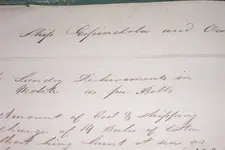 Ship Espindola and Ow
Sundry Disbursements in
Mobile as per Bills
Amount of Cost & Shipping
charge of 19 Bales of Cotton
that being short at sea as